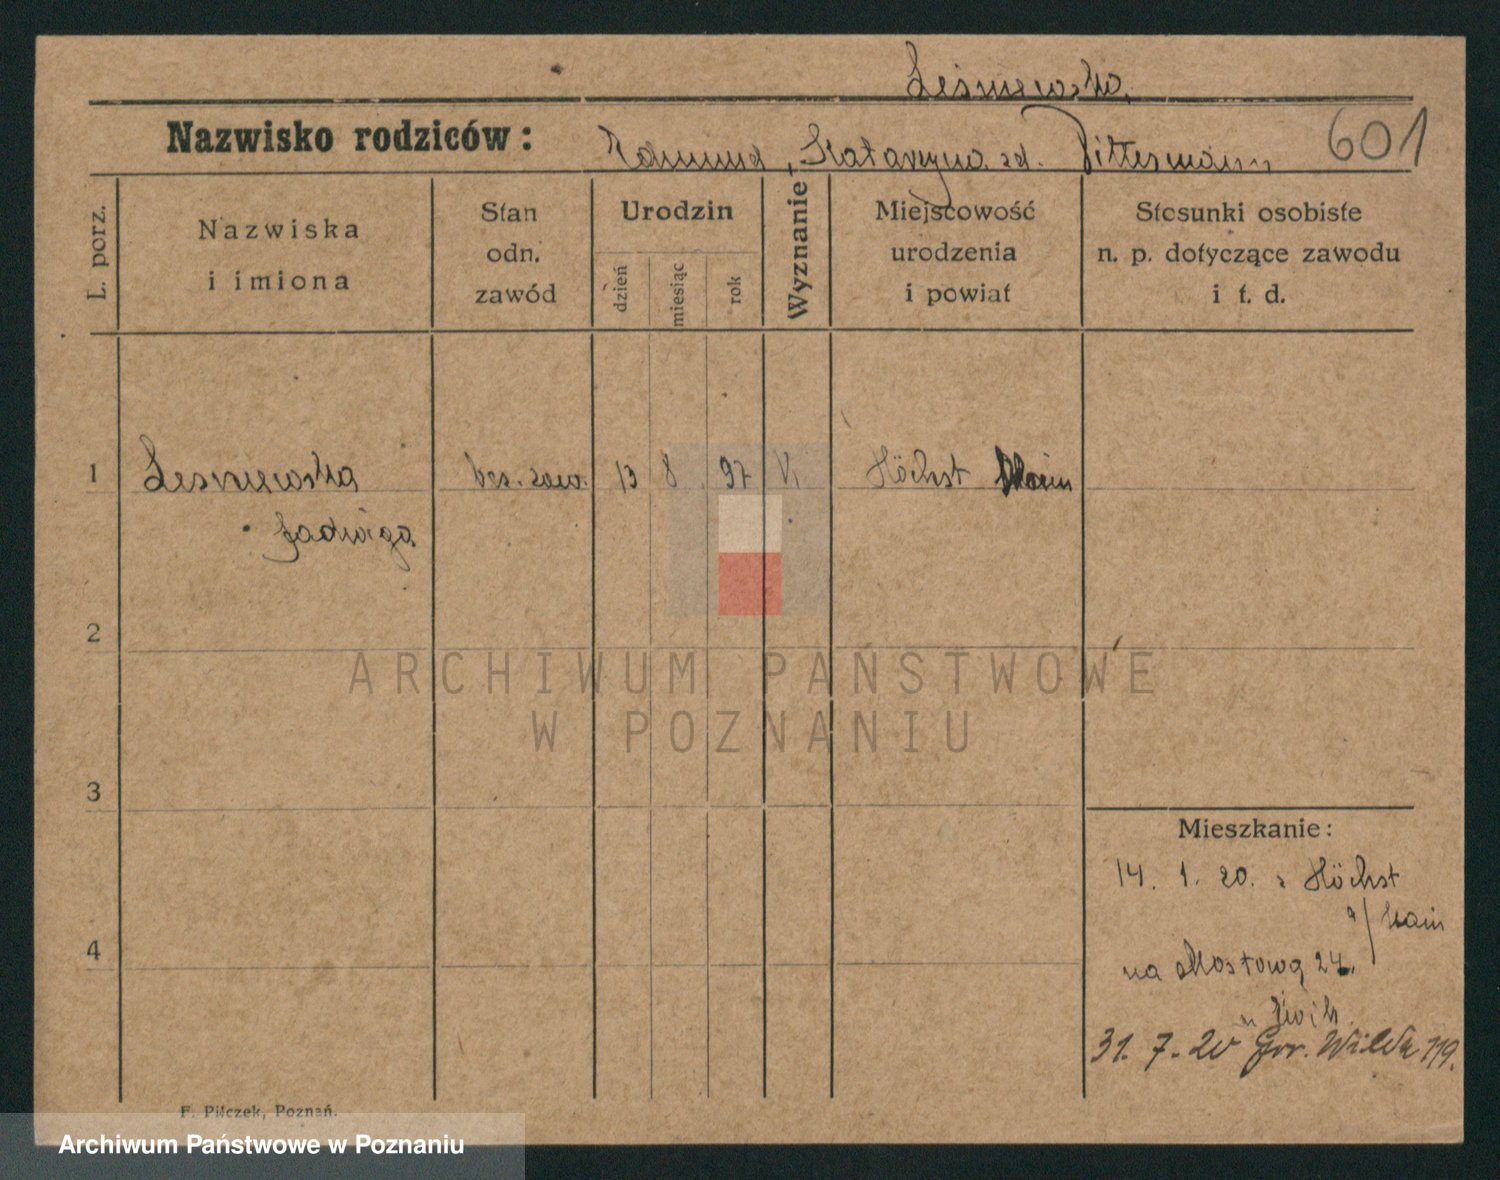 Leśniewska
Nazwisko rodziców: Edmund, Katarzyna zd. Dittesmann 601
L. porz.
Nazwiska
i imiona
Stan
odn.
zawód
Urodzin
dzień
miesiąc
rok
Wyznanie
Miejscowość
urodzenia
i powiat
Stosunki osobiste
n. p. dotyczące zawodu
i t. d.
1 Leśniewska bez. zaw. 13 8. 97 K Höchst Main
Jadwiga
2
ARCHIWUM PAŃSTWOWE
W POZNANIU
3
Mieszkanie:
14. 1. 20. z Höchst
a/Main
4
na Mostową 24.
u
31. 7. 20 Gór. Wilda 119.
F. Pilczek, Poznań.
Archiwum Państwowe w Poznaniu